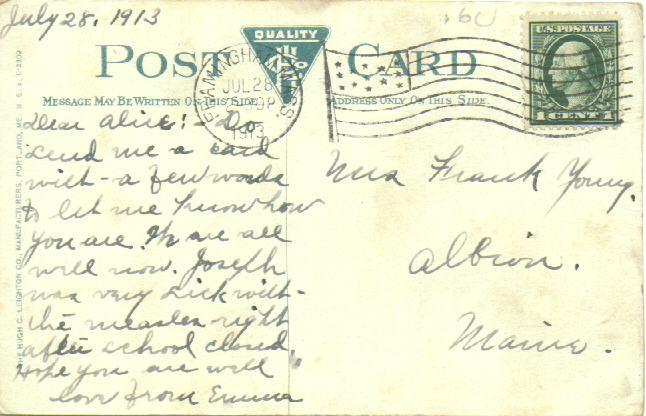 July 28, 1913
QUALITY
POST CARD
FRAMINGHAM, MASS.
JUL 28
1913
U.S. POSTAGE
1 CENT 1
MESSAGE MAY BE WRITTEN ON THIS SIDE
ADDRESS ONLY ON THIS SIDE
Dear Alice! Do
send me a card
with - a few words
to let me know how
you are. We are all
well now. Joseph
was very sick with -
the measles right
after school closed.
Hope you are well
love from Emma
Mrs Frank Young.
Albion.
Maine.
THE HUGH C. LEIGHTON CO., MANUFACTURERS, PORTLAND, ME. U.S.A.